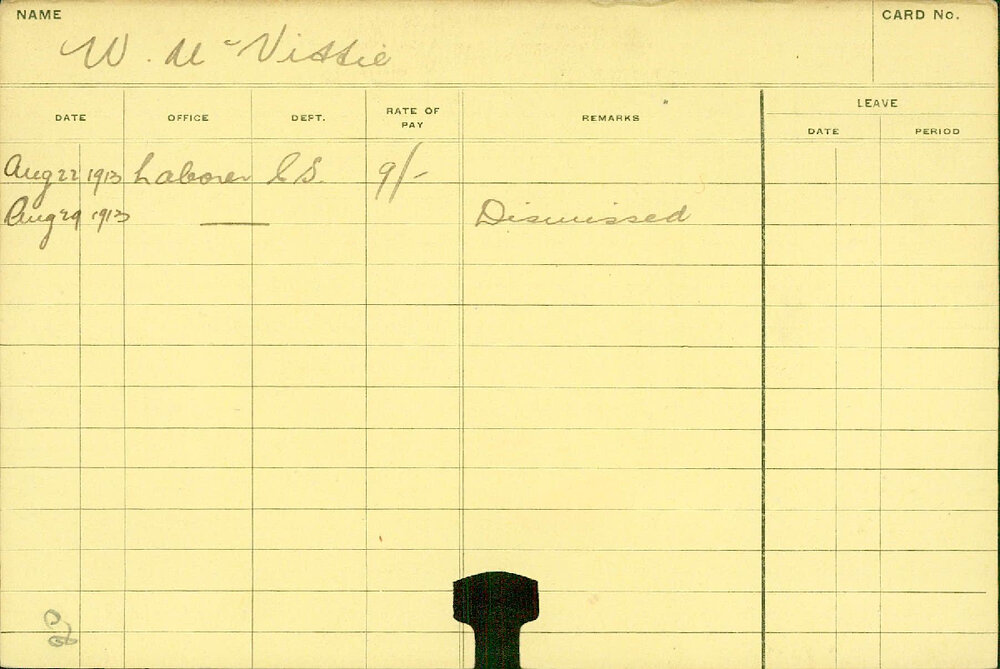 NAME
CARD No.
W. Mc Vittie
LEAVE
DATE OFFICE DEPT. RATE OF PAY REMARKS DATE PERIOD
Aug 22 1913 Laborer C.S. 9/-
Aug 29 1913 — Dismissed